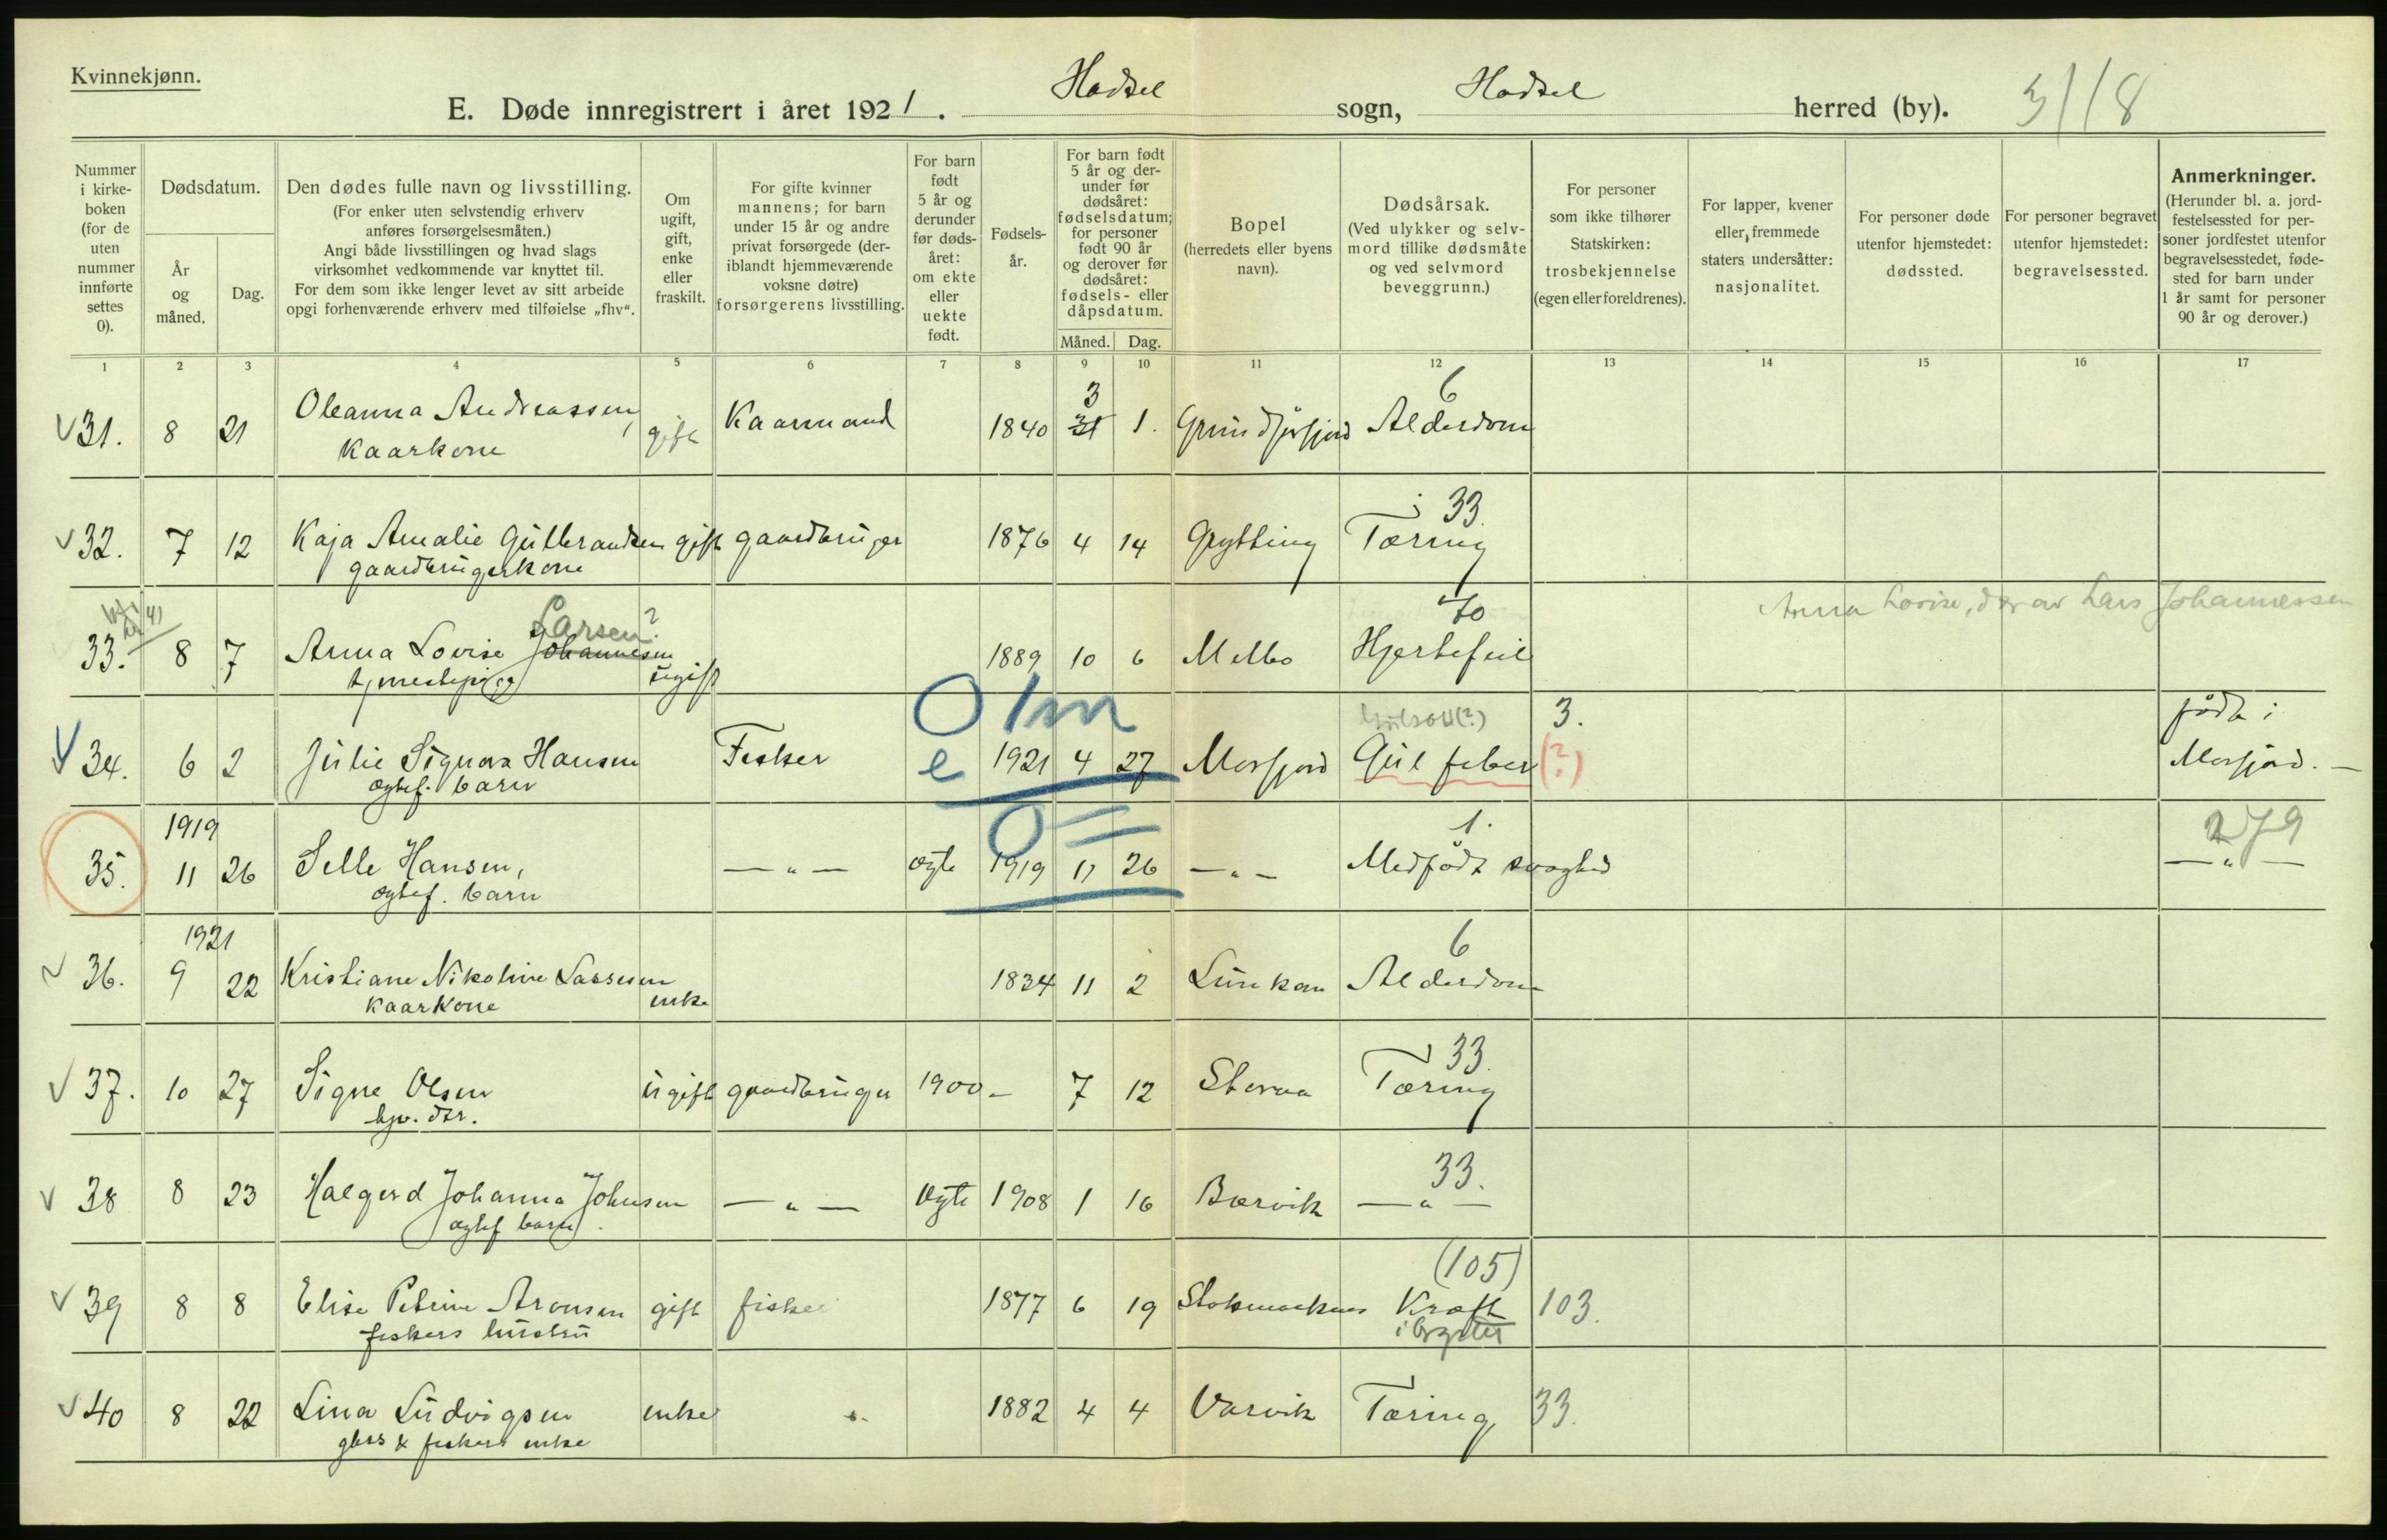 Kvinnekjønn.
E. Døde innregistrert i året 1921. Hadsel sogn, Hadsel herred (by). 3/18
Nummer i kirke-boken (for de uten nummer innførte settes 0).
Dødsdatum.
År og måned.
Dag.
Den dødes fulle navn og livsstilling.
(For enker uten selvstendig erhverv anføres forsørgelsesmåten.)
Angi både livsstillingen og hvad slags virksomhet vedkommende var knyttet til.
For dem som ikke lenger levet av sitt arbeide opgi forhenværende erhverv med tilføielse „fhv“.
Om ugift, gift, enke eller fraskilt.
For gifte kvinner mannens; for barn under 15 år og andre privat forsørgede (deriblandt hjemmeværende voksne døtre) forsørgerens livsstilling.
For barn født 5 år og derunder før døds-året: om ekte eller uekte født.
Fødsels-år.
For barn født 5 år og der-under før dødsåret: fødselsdatum; for personer født 90 år og derover før dødsåret: fødsels- eller dåpsdatum.
Måned. Dag.
Bopel (herredets eller byens navn).
Dødsårsak.
(Ved ulykker og selv-mord tillike dødsmåte og ved selvmord beveggrunn.)
For personer som ikke tilhører Statskirken: trosbekjennelse (egen eller foreldrenes).
For lapper, kvener eller fremmede staters undersåtter: nasjonalitet.
For personer døde utenfor hjemstedet: dødssted.
For personer begravet utenfor hjemstedet: begravelsessted.
Anmerkninger.
(Herunder bl. a. jord-festelsessted for per-soner jordfestet utenfor begravelsesstedet, føde-sted for barn under 1 år samt for personer 90 år og derover.)
1 2 3 4 5 6 7 8 9 10 11 12 13 14 15 16 17
3 6
31. 8 21 Oleanna Andreassen, gift Kaarmand 1840 31 1. Grundførfjord Alderdom
Kaarkone
33.
32. 7 12 Kaja Amalie Gulbrandsen gift gaardbruger 1876 4 14 Grytting Tæring
gaardbrugerkone
Larsen? 70 Anna Lovise, d av Lars Johannessen
33. 8 7 Anna Lovise Johannesen ugift 1889 10 6 Melbo Hjertefeil
tjenestepige
0 1m 3. født i
34. 6 2 Julie Signora Hansen Fisker e 1921 4 27 Morfjord Gul feber (?) Morfjord. —
egtef. barn
1919 0 = 1. 279
35. 11 26 Selle Hansen, — „ — egte 1919 11 26 — „ — Medfødt svaghed — „ —
egtef. barn
1921 6
36. 9 22 Kristiane Nikoline Lassesen enke 1834 11 2 Lunkan Alderdom
Kaarkone
33.
37. 10 27 Signe Olsen ugift gaardbruger 1900 - 7 12 Tæring
hjv. dtr.
33.
38 8 23 Halgerd Johanna Johnsen — „ — egte 1908 1 16 Børvik — „ —
egtef barn.
(105)
39 8 8 Elise Petrine Aronsen gift fisker 1877 6 19 Stokmarknes Kræft 103.
fiskers hustru i brystet
40 8 22 Lina Ludvigsen enke 1882 4 4 Varvik Tæring 33.
gbrs & fiskers enke